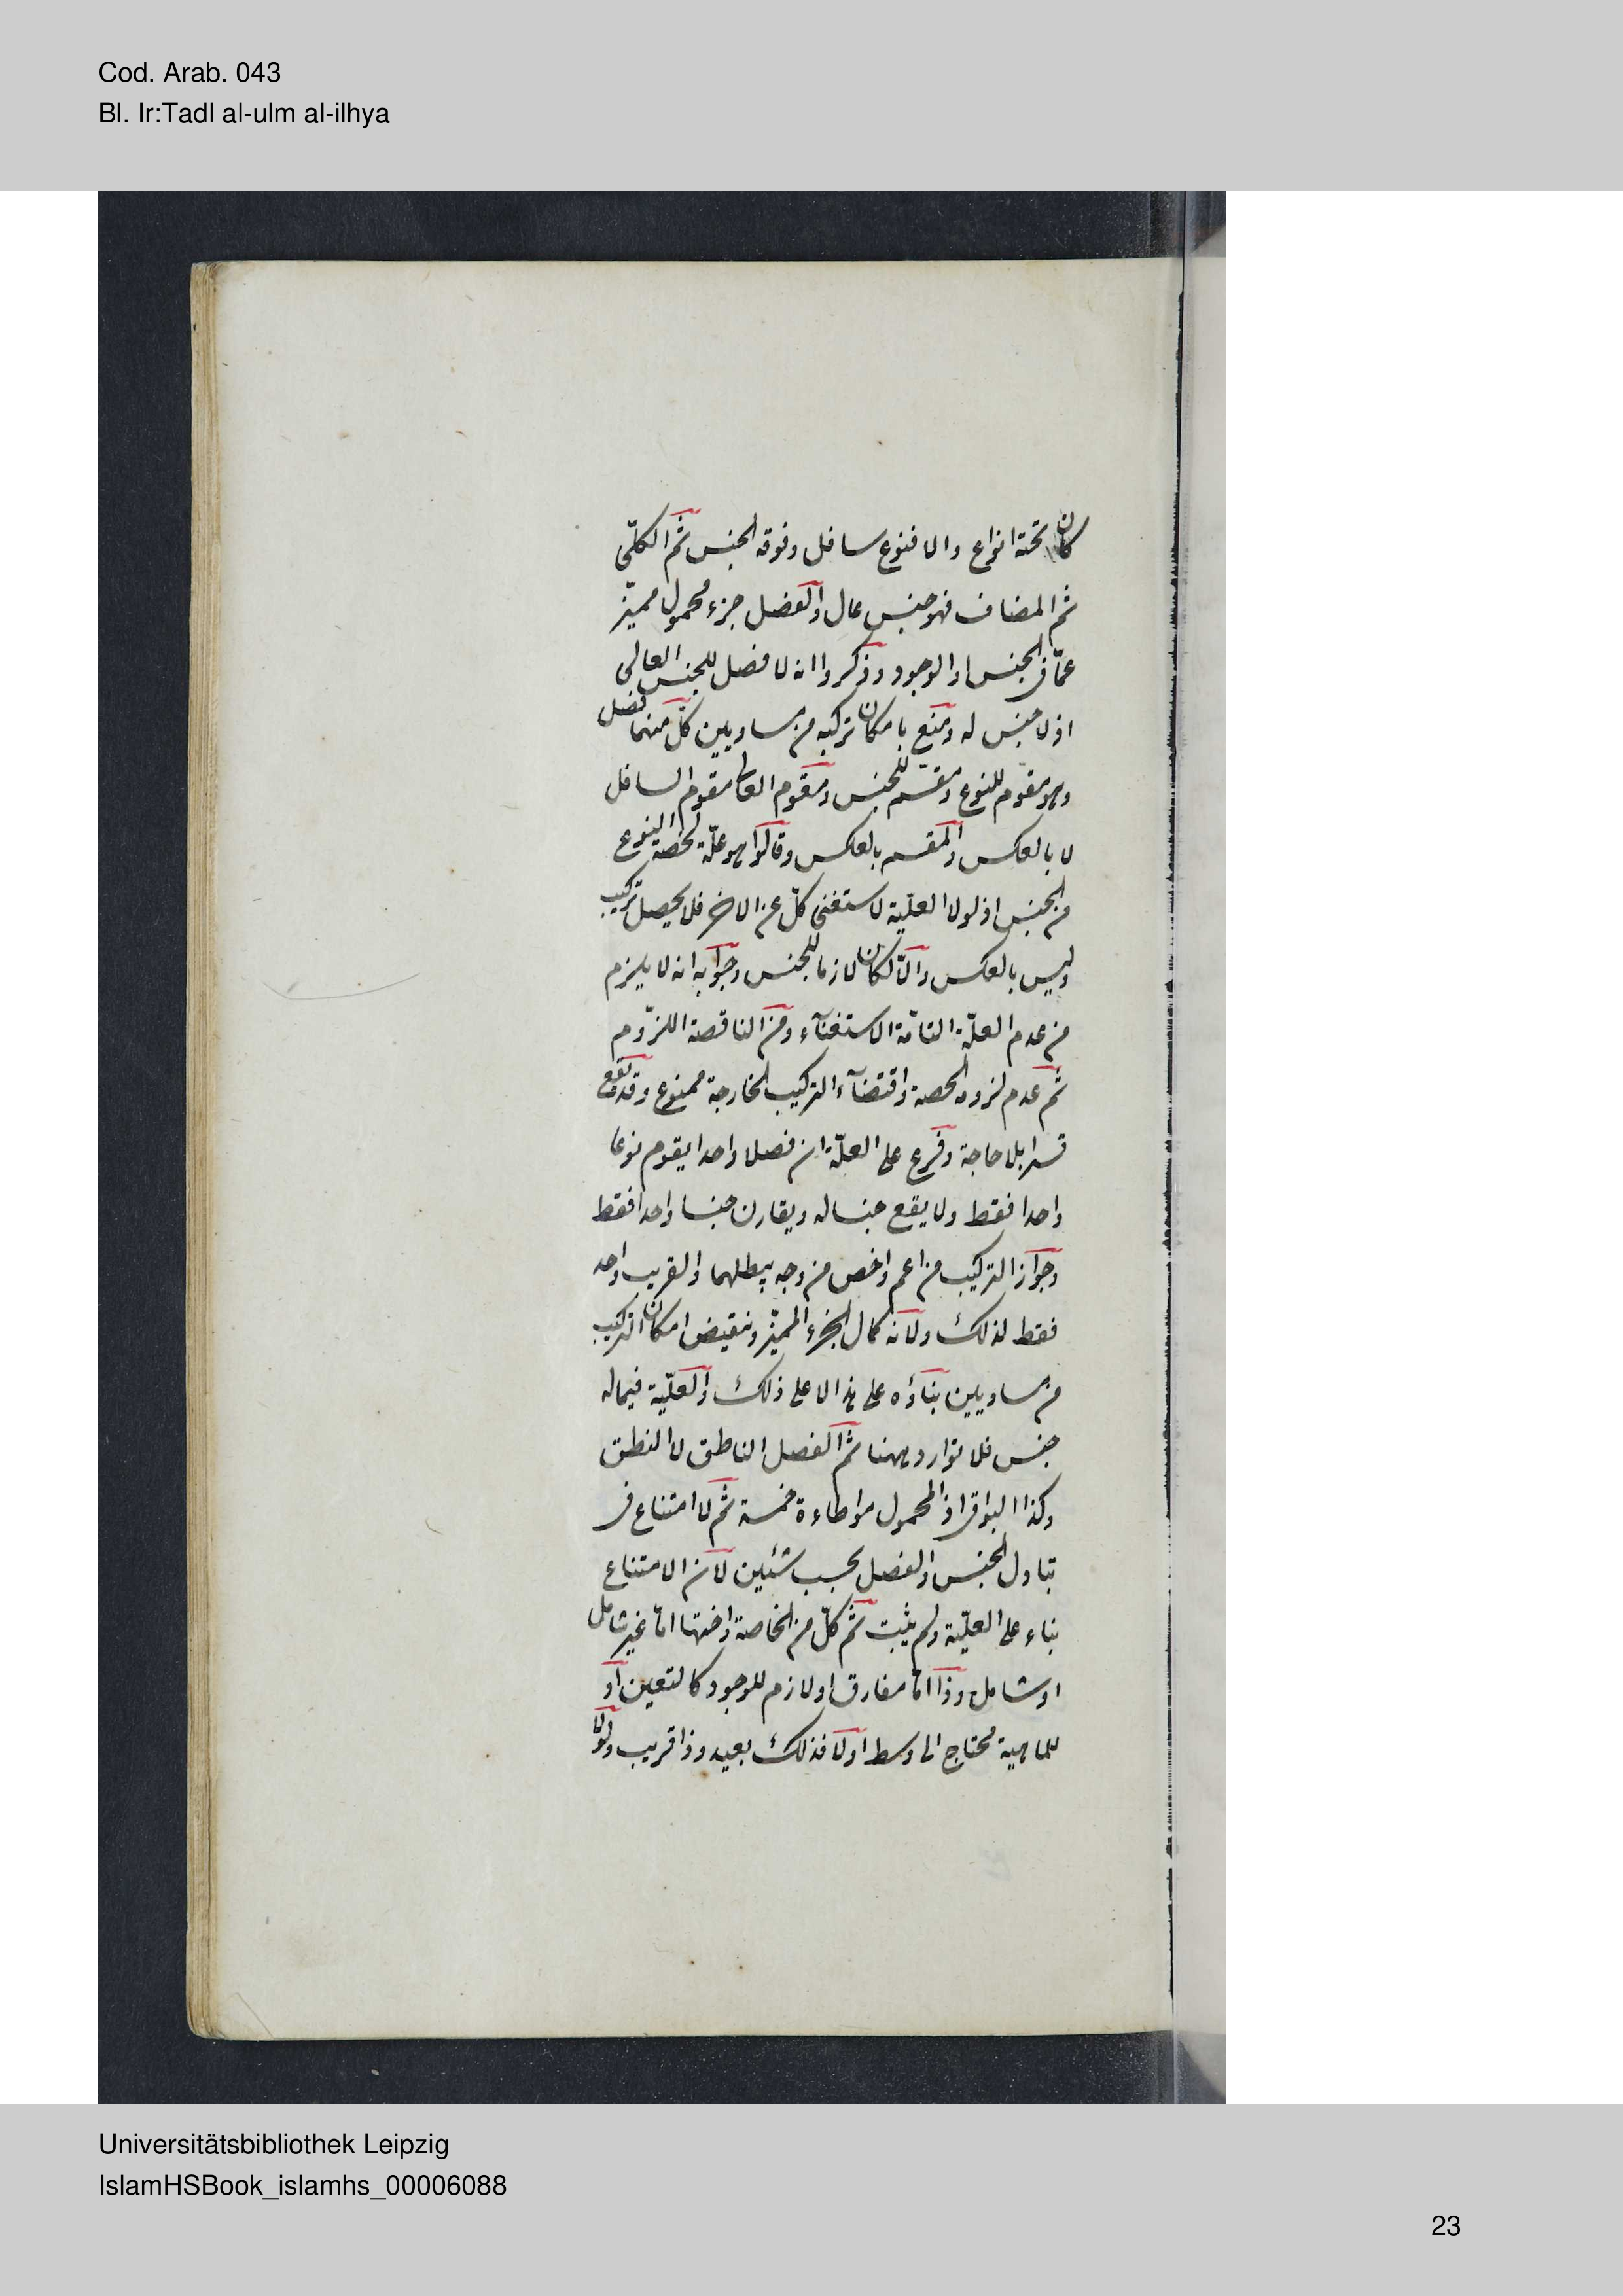 Cod. Arab. 043
Bl. Ir:Tadl al-ulm al-ilhya
كان تحته انواع والا فنوع سافل وفوقه الجنس ثم الكلّى
ثم المضاف فهو جنس عال والفصل جزء محمول مميّز
عمّا فى الجنس او الوجود وذكروا انه لا فصل للجنس العالى
اذ لا جنس له ومنع بامكان تركبه من مساويين كلّ منهما فصل
وهو مقوم للنوع ومقسّم للجنس ومقوم العالى مقوم السافل
لا بالعكس والمقسم بالعكس وقالوا هو علّة لحصة النوع
من الجنس اذ لولا العليّة لاستغنى كلّ عن الاخر فلا يحصل تركيب
وليس بالعكس والّا لكان لازما للجنس وجوابه انه لا يلزم
من عدم العلّة التامّة الاستغنآء ومن الناقصة اللزوم
ثم عدم لزوم الحصة واقتضآء التركيب الخارجة ممنوع وقد يقع
قسرا بلا حاجة وفرع على العلّة ان فصلا واحدا يقوم نوعا
واحدا فقط ولا يقع جنسا له ويقارن جنسا واحدا فقط
وجواز التركيب من اعم واخص من وجه يبطلهما والقريب واحد
فقط لذلك ولانه كمال الجزء المميّز ونقيض امكان التركيب
من مساويين بناؤه على هذا لا على ذلك والعليّة فيما له
جنس فلا توارد ههنا ثم الفصل الناطق لا النطق
وكذا البواقى اذ المحمول مواطاءة خمسة ثم لا امتناع فى
تبادل الجنس والفصل بحسب شئين لان الامتناع
بناء على العليّة ولم يثبت ثم كلّ من الخاصة واختها امّا غير شامل
او شامل وذا امّا مفارق او لازم للوجود كالتعين او
للماهية محتاج الى وسط اولا فذلك بعيد وذا قريب ولولا
Universitätsbibliothek Leipzig
IslamHSBook_islamhs_00006088
23